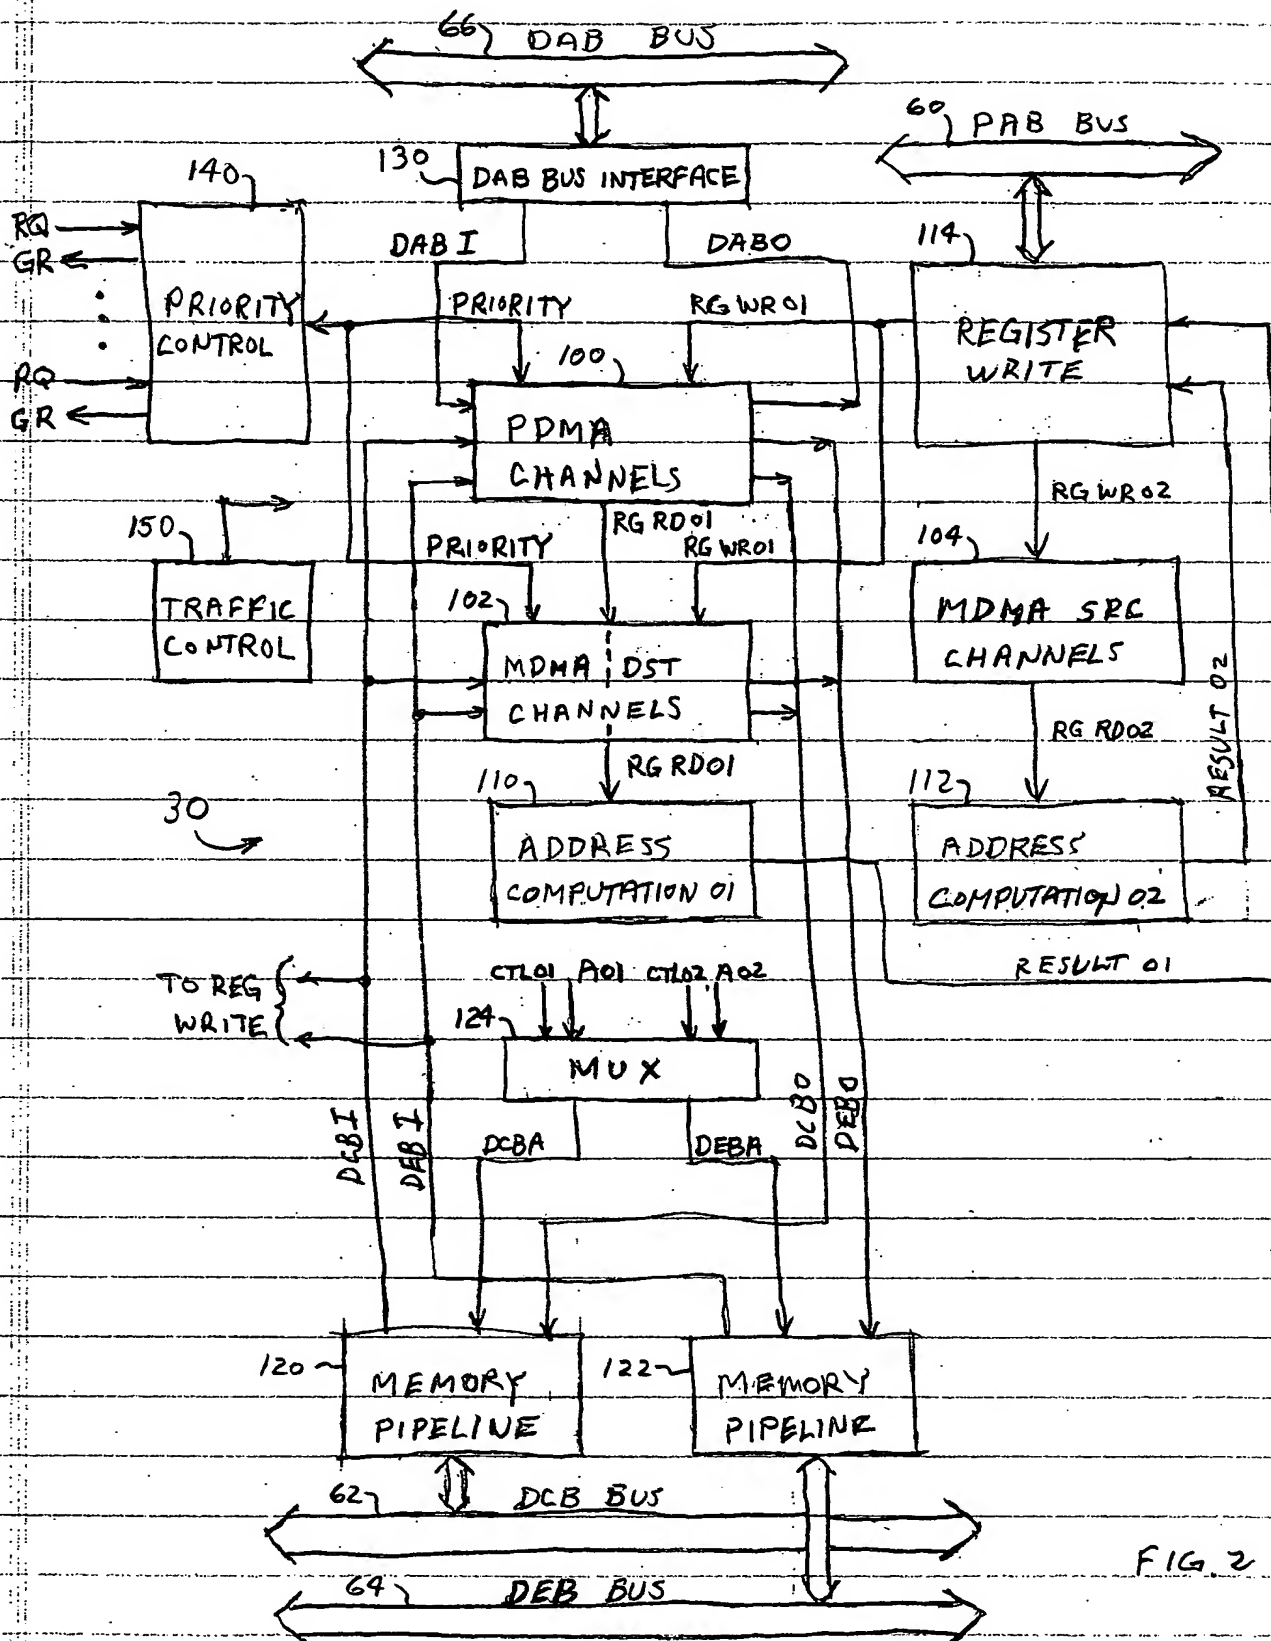 66 DAB BUS
60 PAB BUS
130 DAB BUS INTERFACE
140
RQ
GR
PRIORITY
CONTROL
RQ
GR
DAB I
DABO
114
PRIORITY
RG WR01
REGISTER
WRITE
100
PDMA
CHANNELS
RG WR02
150
RG RD01
PRIORITY
RG WR01
104
TRAFFIC
CONTROL
102
MDMA DST
CHANNELS
MDMA SRC
CHANNELS
RESULT 02
RG RD02
RG RD01
110
112
30
ADDRESS
COMPUTATION 01
ADDRESS
COMPUTATION 02
TO REG
WRITE
CTL01 A01 CTL02 A02
RESULT 01
124
MUX
DCBI
DEBI
DCBA
DEBA
DCBO
DEBO
120
MEMORY
PIPELINE
122
MEMORY
PIPELINE
62 DCB BUS
64 DEB BUS
FIG. 2